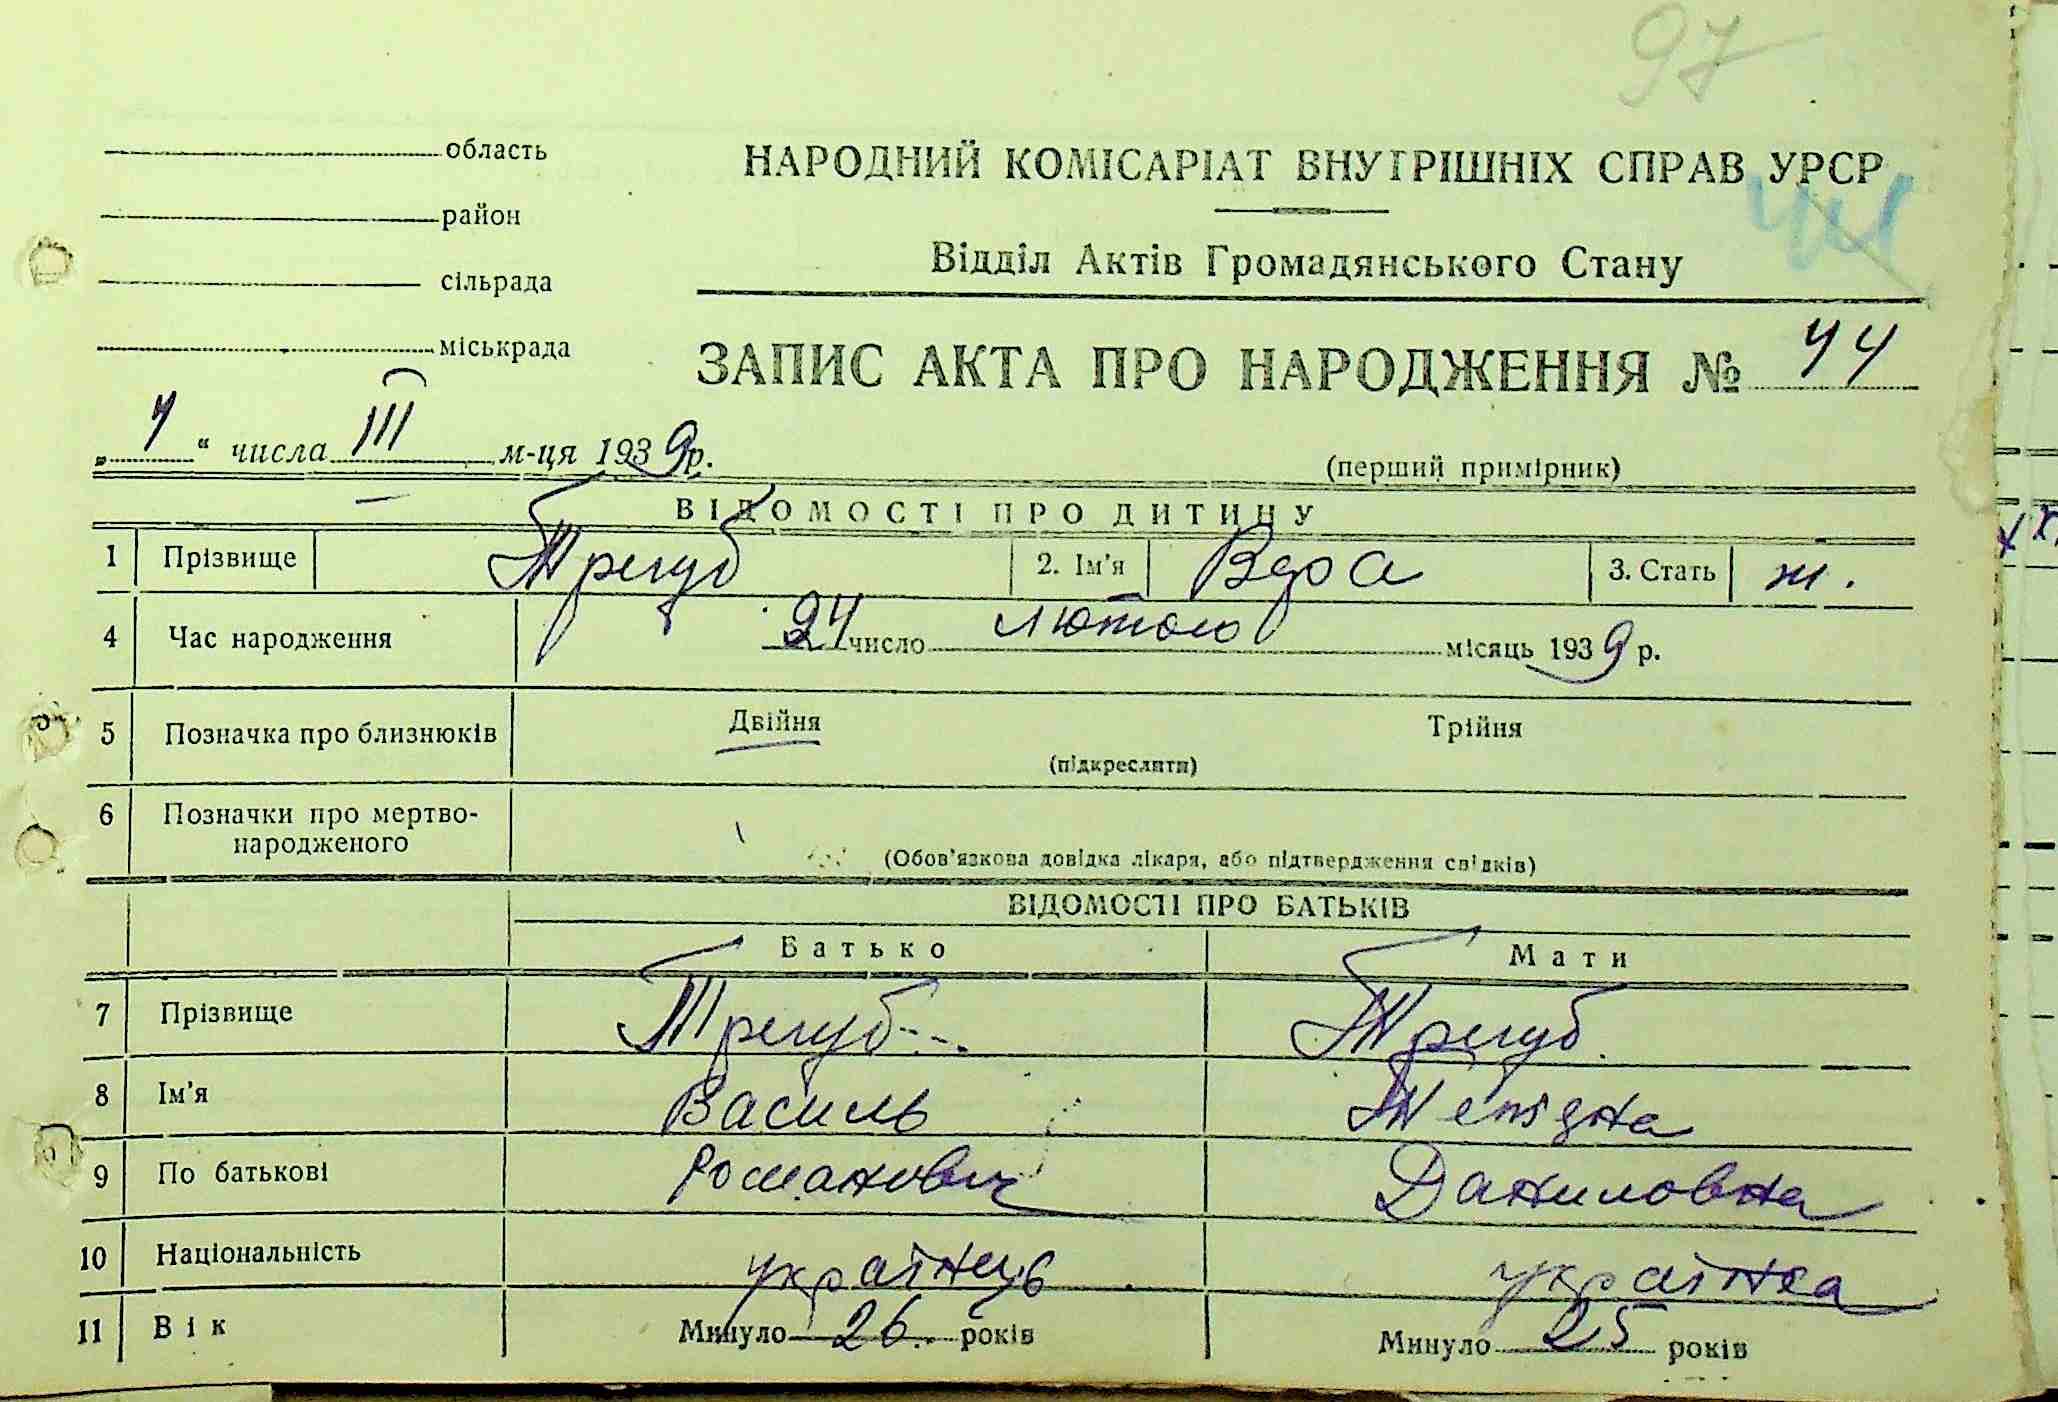 97
область
НАРОДНИЙ КОМІСАРІАТ ВНУТРІШНІХ СПРАВ УРСР
район
Відділ Актів Громадянського Стану
сільрада
міськрада
ЗАПИС АКТА ПРО НАРОДЖЕННЯ № 44
„4“ числа III м-ця 1939 р.
(перший примірник)
ВІДОМОСТІ ПРО ДИТИНУ
1 Прізвище Трегуб 2. Ім'я Вера 3. Стать ж.
4 Час народження 24 число лютого місяць 1939 р.
5 Позначка про близнюків Двійня Трійня
(підкреслити)
6 Позначки про мертво-
народженого
(Обов'язкова довідка лікаря, або підтвердження свідків)
ВІДОМОСТІ ПРО БАТЬКІВ
Батько Мати
7 Прізвище Трегуб Трегуб
8 Ім'я Василь
9 По батькові Романович Даниловна
10 Національність українець українка
11 Вік Минуло 26 років Минуло 25 років